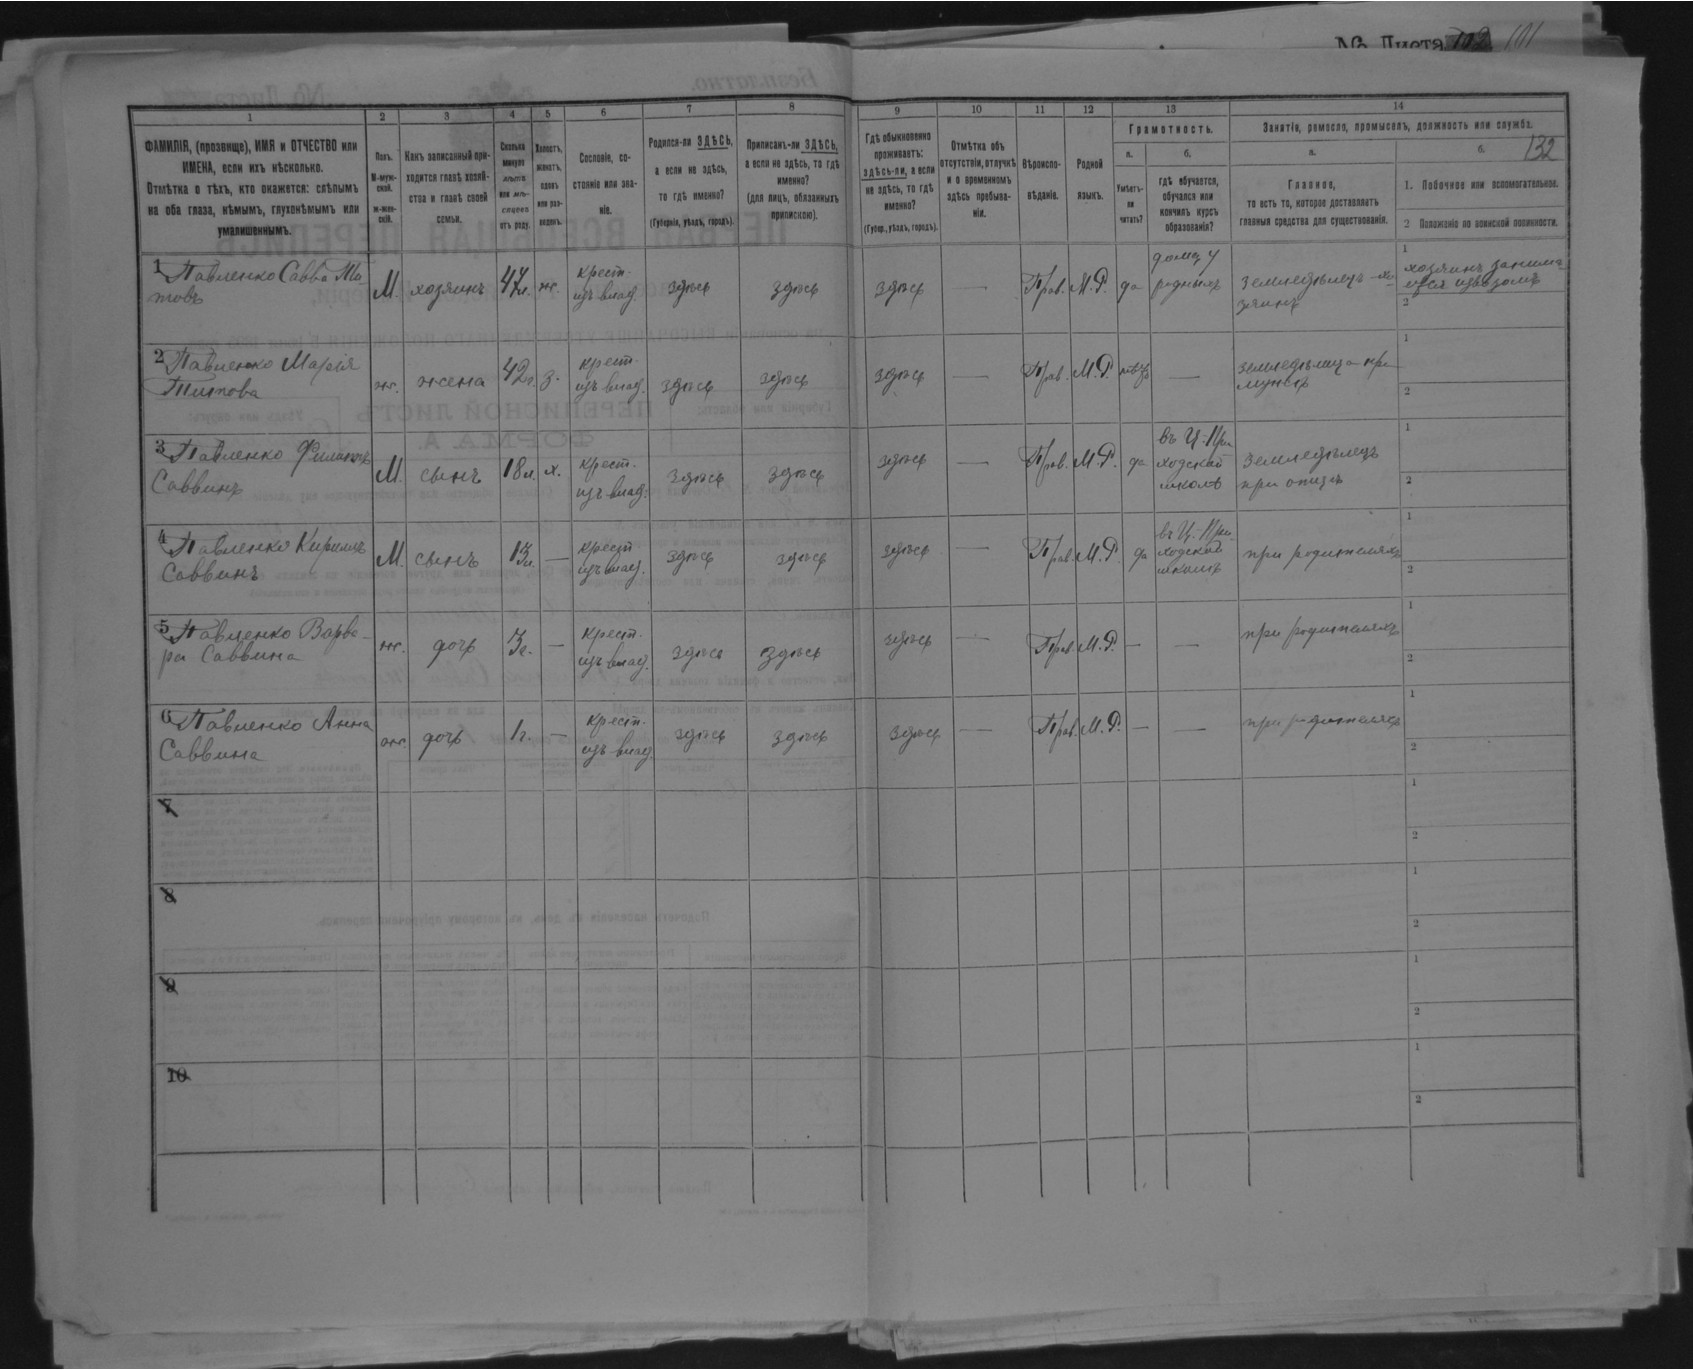 № Листа 102 101
132
1 2 3 4 5 6 7 8 9 10 11 12 13 14
ФАМИЛІЯ, (прозвище), ИМЯ и ОТЧЕСТВО или
ИМЕНА, если ихъ нѣсколько.
Отмѣтка о тѣхъ, кто окажется: слѣпымъ
на оба глаза, нѣмымъ, глухонѣмымъ или
умалишеннымъ.
Полъ.
М-муж-
ской.
ж-жен-
скій.
Какъ записанный при-
ходится главѣ хозяй-
ства и главѣ своей
семьи.
Сколько
минуло
лѣтъ
или мѣ-
сяцевъ
отъ роду.
Холостъ,
женатъ,
вдовъ
или раз-
веденъ.
Сословіе, со-
стояніе или зва-
ніе.
Родился-ли ЗДѢСЬ,
а если не здѣсь,
то гдѣ именно?
(Губернія, уѣздъ, городъ).
Приписанъ-ли ЗДѢСЬ,
а если не здѣсь, то гдѣ
именно?
(для лицъ, обязанныхъ
припискою).
Гдѣ обыкновенно
проживаетъ:
здѣсь-ли, а если
не здѣсь, то гдѣ
именно?
(Губер., уѣздъ, городъ).
Отмѣтка объ
отсутствіи, отлучкѣ
и о временномъ
здѣсь пребыва-
ніи.
Вѣроиспо-
вѣданіе.
Родной
языкъ.
Грамотность.
а.
Умѣетъ-
ли
читать?
б.
гдѣ обучается,
обучался или
кончилъ курсъ
образованія?
Занятіе, ремесло, промыселъ, должность или служба.
а.
Главное,
то есть то, которое доставляетъ
главныя средства для существованія.
б.
1. Побочное или вспомогательное.
2 Положеніе по воинской повинности.
1 Павленко Савва Ти-
товъ
М. хозяинъ 47л. ж. крест. изъ влад. здѣсь здѣсь здѣсь Прав. М.Р. да дома у родныхъ земледѣлецъ-хо-
зяинъ
1 хозяинъ занима-
ется извозомъ
2
2 Павленко Марія
Титова
ж. жена 42г. з. крест. изъ влад. здѣсь здѣсь здѣсь — Прав. М.Р. — земледѣлица при
мужѣ
1
2
3 Павленко Филиппъ
Саввинъ
М. сынъ 18л. х. крест. изъ влад. здѣсь здѣсь здѣсь — Прав. М.Р. да въ Ц.-При-
ходской
школѣ
земледѣлецъ
при отцѣ
1
2
4 Павленко Кириллъ
Саввинъ
М. сынъ 13л. — крест. изъ влад. здѣсь здѣсь здѣсь — Прав. М.Р. да въ Ц.-При-
ходской
школѣ
при родителяхъ
1
2
5 Павленко Варва-
ра Саввина
ж. дочь 3г. — крест. изъ влад. здѣсь здѣсь здѣсь — Прав. М.Р. — — при родителяхъ
1
2
6 Павленко Анна
Саввина
ж. дочь 1г. — крест. изъ влад. здѣсь здѣсь здѣсь — Прав. М.Р. — — при родителяхъ
1
2
7
1
2
8
1
2
9
1
2
10
1
2